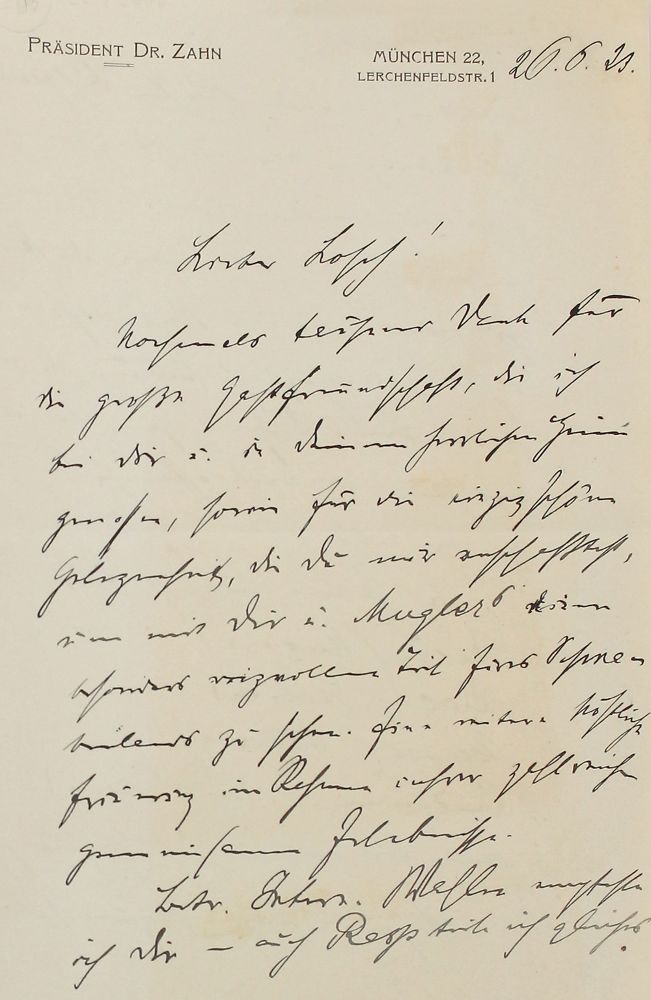 PRÄSIDENT DR. ZAHN
MÜNCHEN 22,
LERCHENFELDSTR. 1
26.6.
Lieber Losch!
Nochmals tausend Dank für
die große Gastfreundschaft, die ich
bei Dir u. in Deinem herrlichen Heim
genossen, sowie für die einzig schöne
Gelegenheit, die Du mir verschafftest,
um mit Dir u. Muglers einen
besonders reizvollen Teil Eures Schwa-
benlands zu sehen. Eine weitere köstliche
Erinnerung im Rahmen unserer zahlreichen
gemeinsamen Erlebnisse.
Betr. Intern. Wahlen empfehle
ich Dir – auch teile ich gleiches